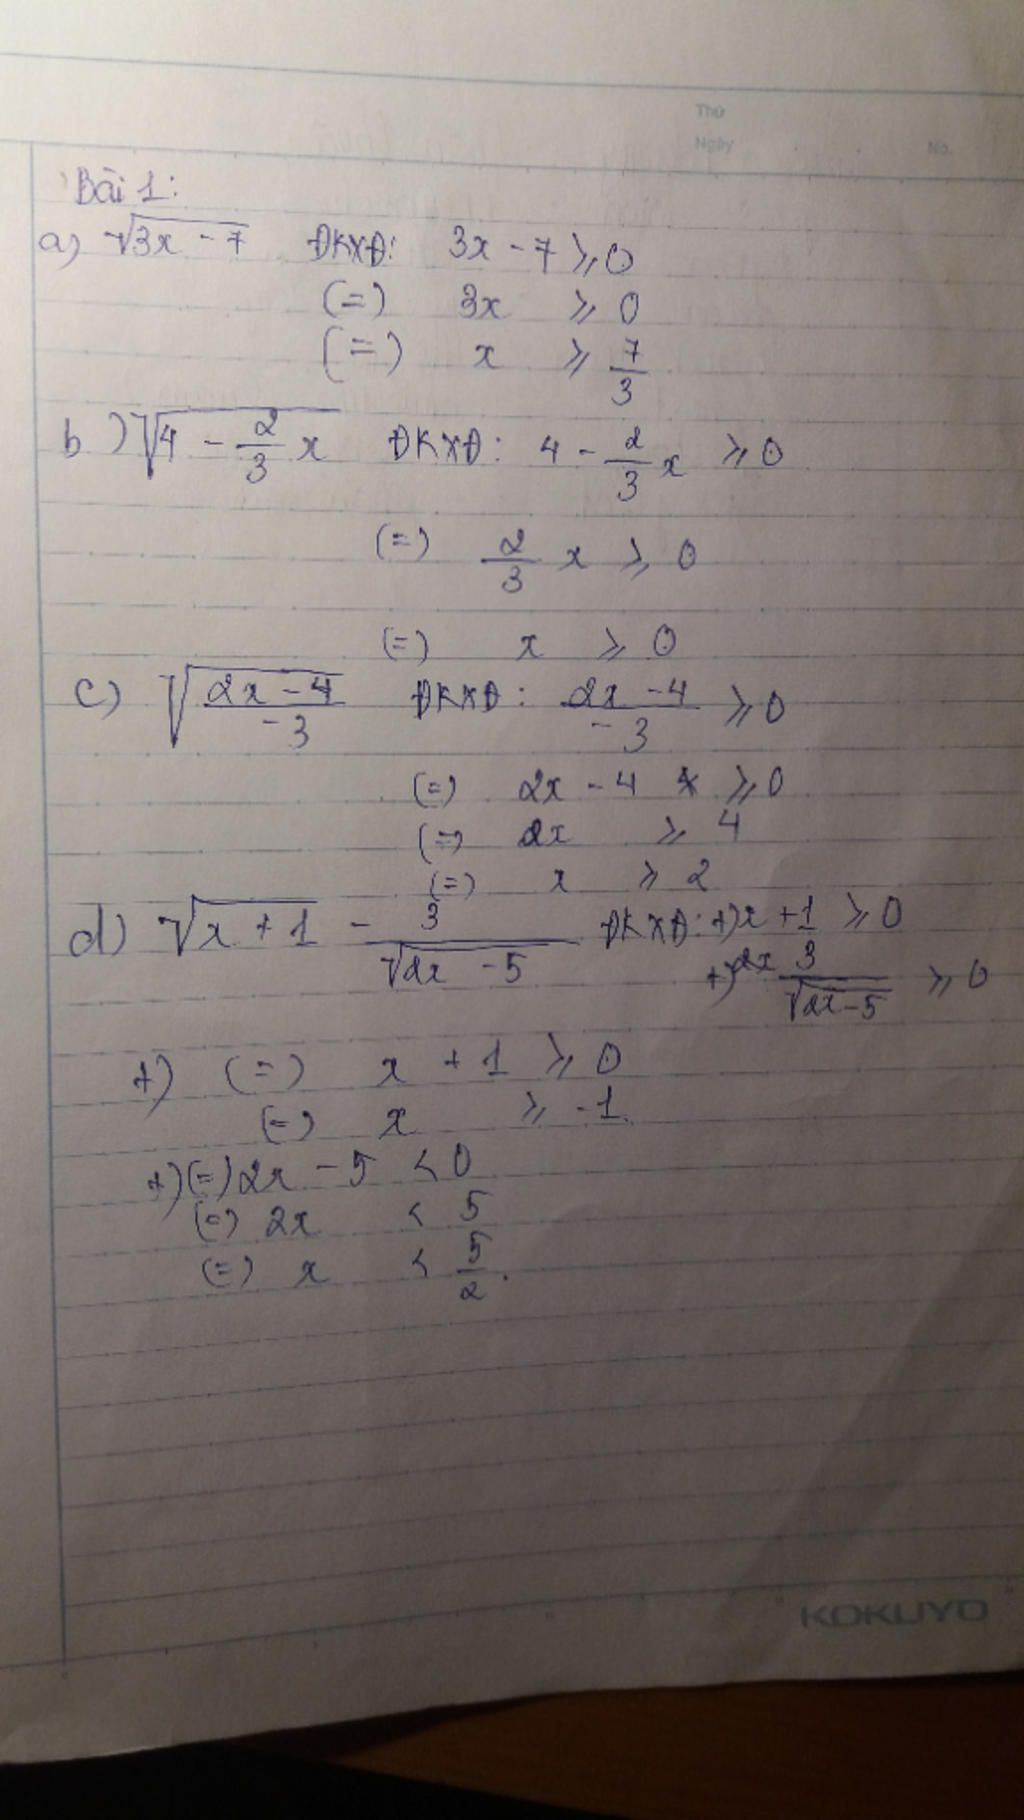 Thứ
Ngày No.
Bài 1:
a) √(3x - 7) ĐKXĐ: 3x - 7 ≥ 0
(=) 3x ≥ 0
(=) x ≥ 7/3
b) √(4 - 2/3 x) ĐKXĐ: 4 - 2/3 x ≥ 0
(=) 2/3 x ≥ 0
(=) x ≥ 0
c) √((2x - 4)/-3) ĐKXĐ: (2x - 4)/-3 ≥ 0
(=) 2x - 4 ≥ 0
(=) 2x ≥ 4
(=) x ≥ 2
d) √(x + 1) - 3/√(2x - 5) ĐKXĐ: +) x + 1 ≥ 0
+) 3/√(2x - 5) ≥ 0
+) (=) x + 1 ≥ 0
(=) x ≥ -1.
+) (=) 2x - 5 < 0
(=) 2x < 5
(=) x < 5/2.
KOKUYO